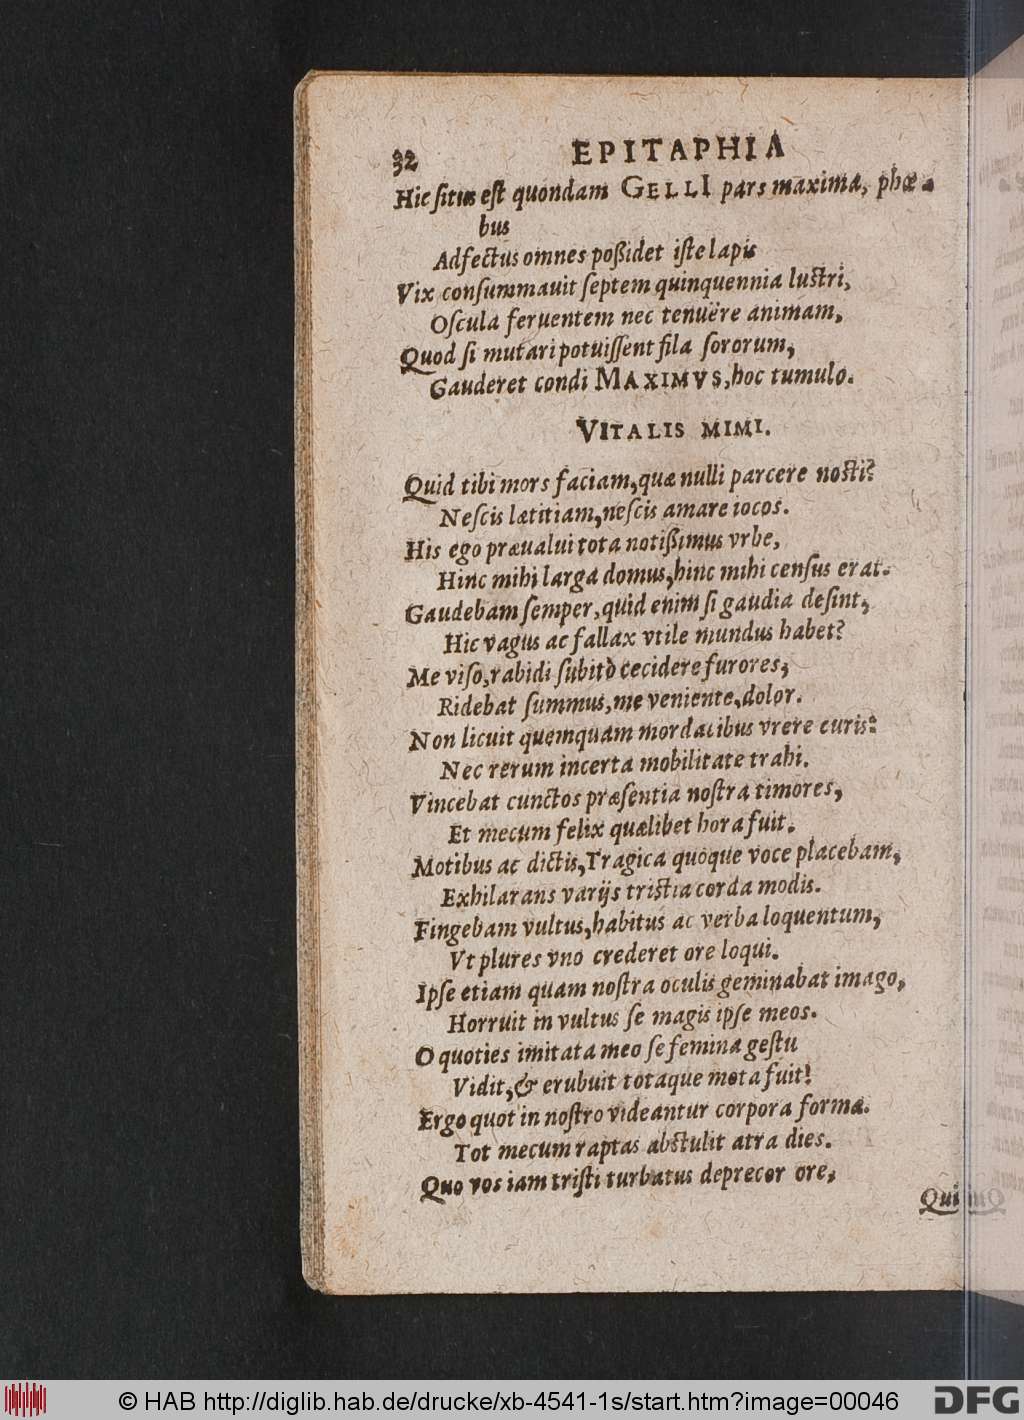 32
EPITAPHIA
Hic ſitus eſt quondam GELLI pars maxima, phœ-
bus
Adfectus omnes poßidet iſte lapis
Vix conſummauit ſeptem quinquennia luſtri,
Oſcula feruentem nec tenuëre animam,
Quod ſi mutari potuiſſent fila ſororum,
Gauderet condi MAXIMVS, hoc tumulo.
VITALIS MIMI.
Quid tibi mors faciam, quæ nulli parcere noſti?
Neſcis lætitiam, neſcis amare iocos.
His ego præualui tota notißimus vrbe,
Hinc mihi larga domus, hinc mihi cenſus erat.
Gaudebam ſemper, quid enim ſi gaudia deſint,
Hic vagus ac fallax vtile mundus habet?
Me viſo, rabidi ſubitò cecidere furores;
Ridebat ſummus, me veniente, dolor.
Non licuit quemquam mordacibus vrere curis:
Nec rerum incerta mobilitate trahi.
Vincebat cunctos præſentia noſtra timores,
Et mecum felix quælibet hora fuit.
Motibus ac dictis, Tragica quoque voce placebam,
Exhilarans varijs triſtia corda modis.
Fingebam vultus, habitus ac verba loquentum,
Vt plures vno crederet ore loqui.
Ipſe etiam quam noſtra oculis geminabat imago,
Horruit in vultus ſe magis ipſe meos.
O quoties imitata meo ſe femina geſtu
Vidit, & erubuit totaque mota fuit!
Ergo quot in noſtro videantur corpora forma.
Tot mecum raptas abſtulit atra dies.
Quo vos iam triſti turbatus deprecor ore,
Qui
© HAB http://diglib.hab.de/drucke/xb-4541-1s/start.htm?image=00046
DFG